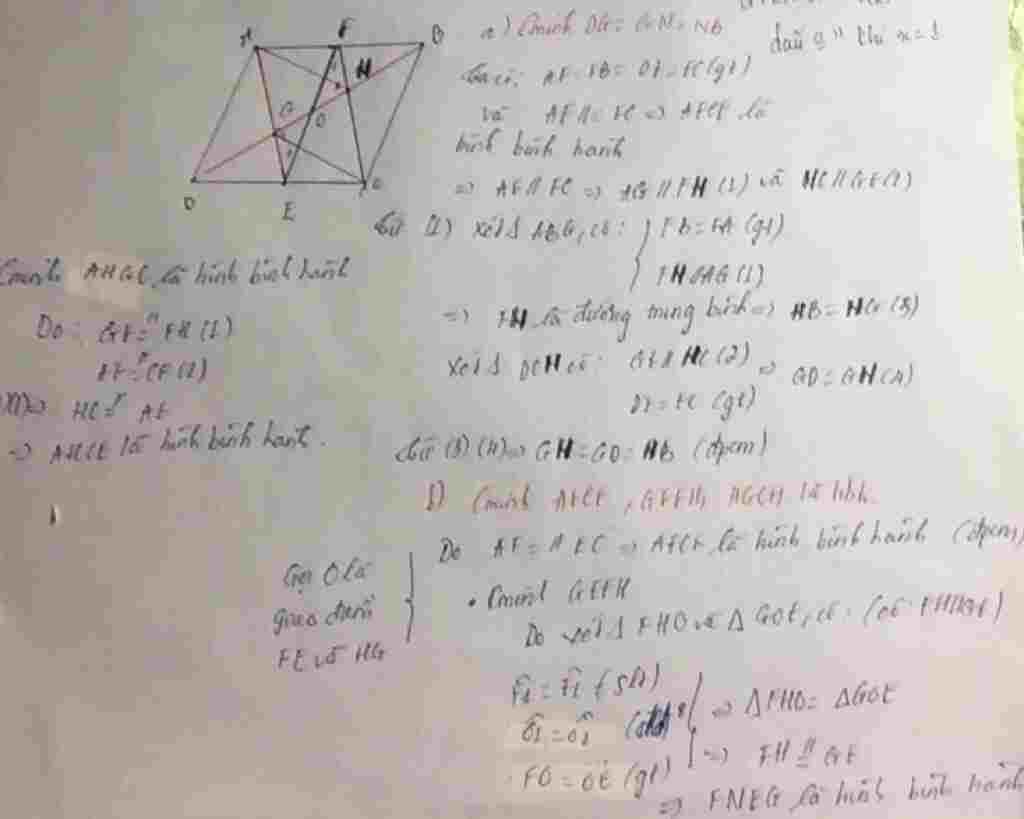 a) Cminh DG = GN = NB
dấu "=" thì x = 1
Ta có: AF = FB = DE = EC (gt)
và AF // = EC => AFCE là
hình bình hành
=> AE // FC => AG // FH (1) và HC // GE (2)
Từ (1) xét Δ ABG, có: { FB = FA (gt)
FH // AG (1)
=> FH là đường trung bình => HB = HG (3)
Xét Δ DCH có: GE // HC (2)
DE = EC (gt)
=> GD = GH (4)
Từ (3) (4) => GH = GD = HB (đpcm)
Cminh AHGC là hình bình hành
Do: GE = // FH (1)
AE = // CF (2)
=> HC = // AE
=> AHCE là hình bình hành.
b) Cminh AFCE, GEFH, AGCH là hbh.
Do AF = // EC => AFCE là hình bình hành (đpcm)
Gọi O là
giao điểm
FE và HG
• Cminh GEFH
Do xét Δ FHO và Δ GOE, có: (có FH // GE)
F̂1 = Ê1 (SLT)
Ô1 = Ô2
FO = OE (gt)
=> ΔFHO = ΔGOE
=> FH // = GE
=> FNEG là hình bình hành
A F B
H
G
O
D E C